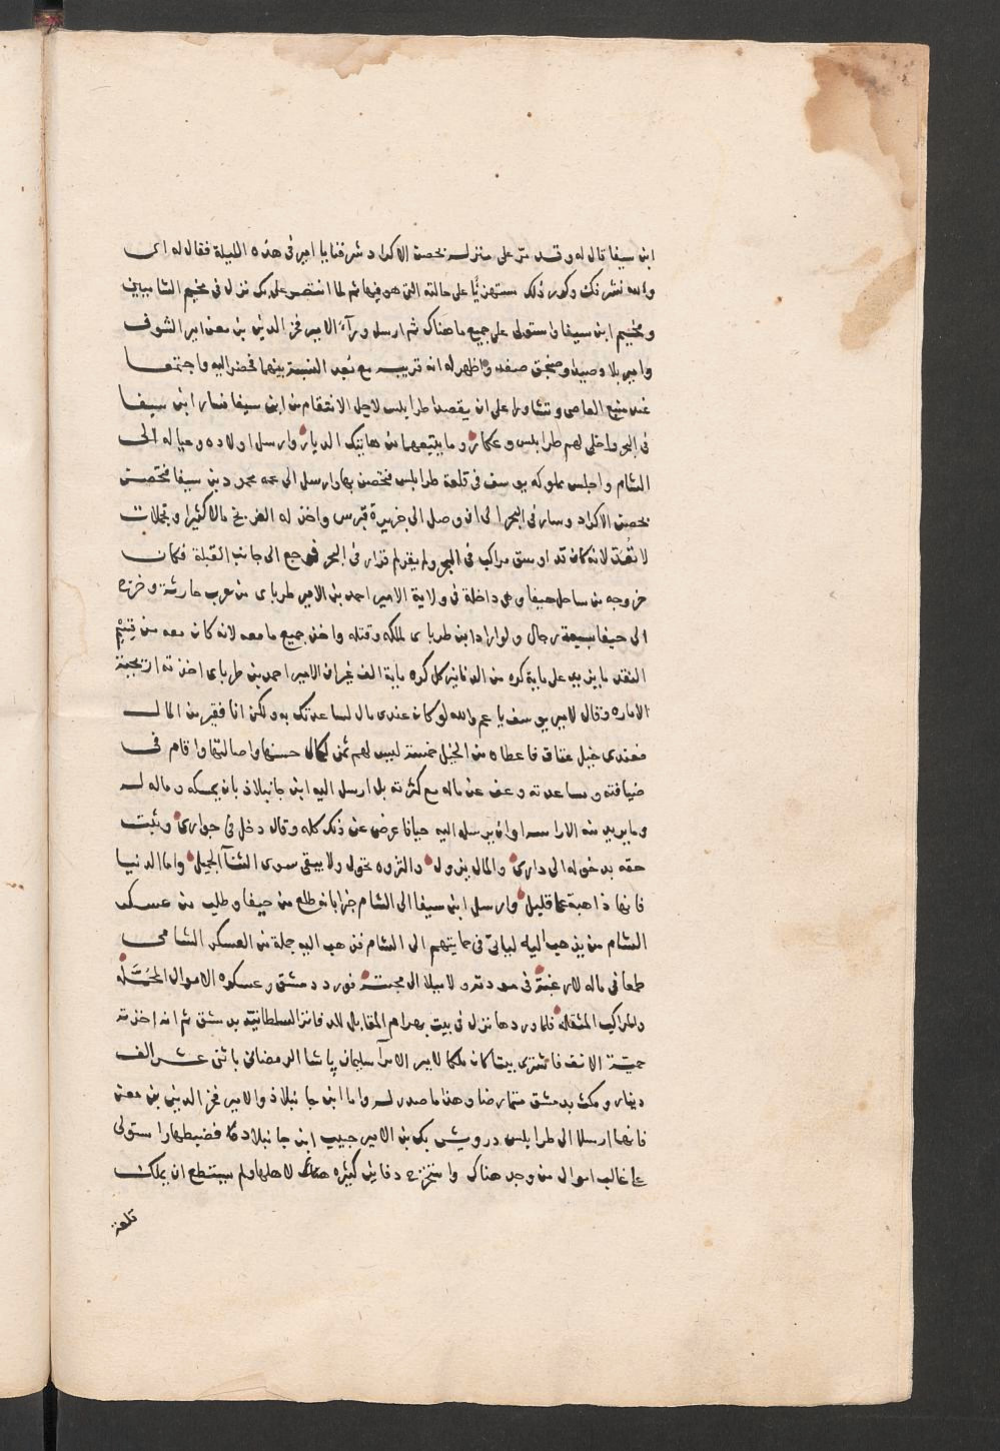 ابن سيفا قال له وقد مر على منزله بحصن الاكراد شرفنا يا امير في هذه الليلة فقال له اى
والله نشرفك وكرر ذلك مستهزيًا على حالته التي هو فيها ثم لما انتصر على نزل في مخيم الشاميين
ومخيم ابن سيفا واستولى على جميع ما هناك ثم ارسل ورآء الامير فخر الدين بن معن امير الشوف
وامير بلاد صيدا وصنجق صفد واظهر له انه قريبه مع بُعد النسبة بينهما فحضر اليه واجتمعا
عند منبع العاصى وتشاورا على ان يقصدا طرابلس لاجل الانتقام من ابن سيفا فسار ابن سيفا
في البحر واخلى لهم طرابلس وعكار وما يتبعهما من هاتيك الديار وارسل اولاده وعياله الى
الشام واجلس مملوكه يوسف في قلعة طرابلس فتحصن بها وارسل الى عمه محمود بن سيفا فتحصن
بحصن الاكراد وسار في البحر الى ان وصل الى جزيرة قبرس واخذ له الفرنج مالا كثيرا وتجملات
لا تُعد لانه كان قد اوسق مراكب في البحر ولم يقر له قرار في البحر فرجع الى جانب القبلة فكان
خروجه من ساحل حيفا وهى داخلة في ولاية الامير احمد بن الامير طرباى من عرب حارثة وخرج
الى حيفا بسبعة رجال ولو اراد ابن طرباى لملكه وقتله واخذ جميع ما معه لانه كان معه من
النقد ما يزيد على ماية كره من الذهب كل كره ماية الف غير ان الامير احمد بن طرباى اخذته اريحية
الاماره وقال لامير يوسف يا عم والله لو كان عندى مال لساعدتك به ولكن انا فقير من المال
فعندى خيل عتاق فاعطاه من الخيل خمسة ليس لهم ثمن لكمال حسنها واصالتها واقام في
ضيافته ومساعدته وعف عن ماله مع كثرته بل ارسل اليه ابن جانبلاذ بان يمسكه وماله له
وما يريد منه الا راسه او ان يرسله اليه حيا فاعرض عن ذلك كله وقال دخل في جوارى وثبت
حقه بدخوله الى دارى والمال يزول والثروه تحول ولا يبقى سوى الثنآ الجميل واما الدنيا
فانها ذاهبة عما قليل وارسل ابن سيفا الى الشام خبرا بانه طلع من حيفا وطلب من عسكر
الشام من يذهب اليه لياتى في حمايتهم الى الشام فذهب اليه جملة من العسكر الشامى
طمعا في ماله لا رغبة في مودته ولا ميلا الى محبته فورد دمشق وعسكره الاموال المحمّله
والمراكب المثقله فلما وردها نزل في بيت بهرام المقابل للدفاتر السلطانية بدمشق ثم انه اخذته
حميّة الانفه فاشترى بيتا كان ملكا لامير الامرآ سليمان پاشا الرمضانى باثنى عشر الف
دينار ومكث بدمشق متمارضا وهذا ما صدر له واما ابن جانبلاذ والامير فخر الدين بن معن
فانهما ارسلا الى طرابلس درويش بك بن الامير حبيب ابن جانبلاد فضبطها واستولى
على غالب اموال من وجد هناك واستخرج دفاين كثيره لاهلها ولم يستطع ان يملك
قلعة